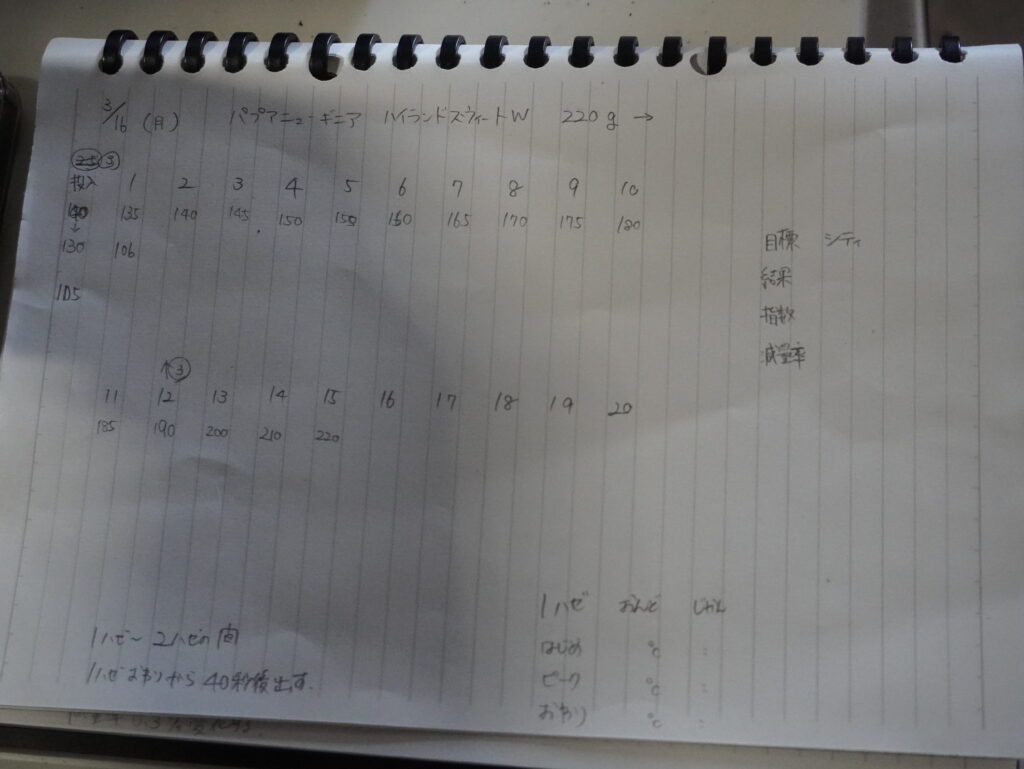 3/16 (月) パプアニューギニア ハイランドスウィートW 220g →
③
投入 1 2 3 4 5 6 7 8 9 10
140 135 140 145 150 155 160 165 170 175 180
↓
130 106
目標 シティ
105
結果
指数
減量率
↑③
11 12 13 14 15 16 17 18 19 20
185 190 200 210 220
1ハゼ おんど じかん
はじめ ℃ :
ピーク ℃ :
おわり ℃ :
1ハゼ〜2ハゼの間
1ハゼおわりから40秒後出す.